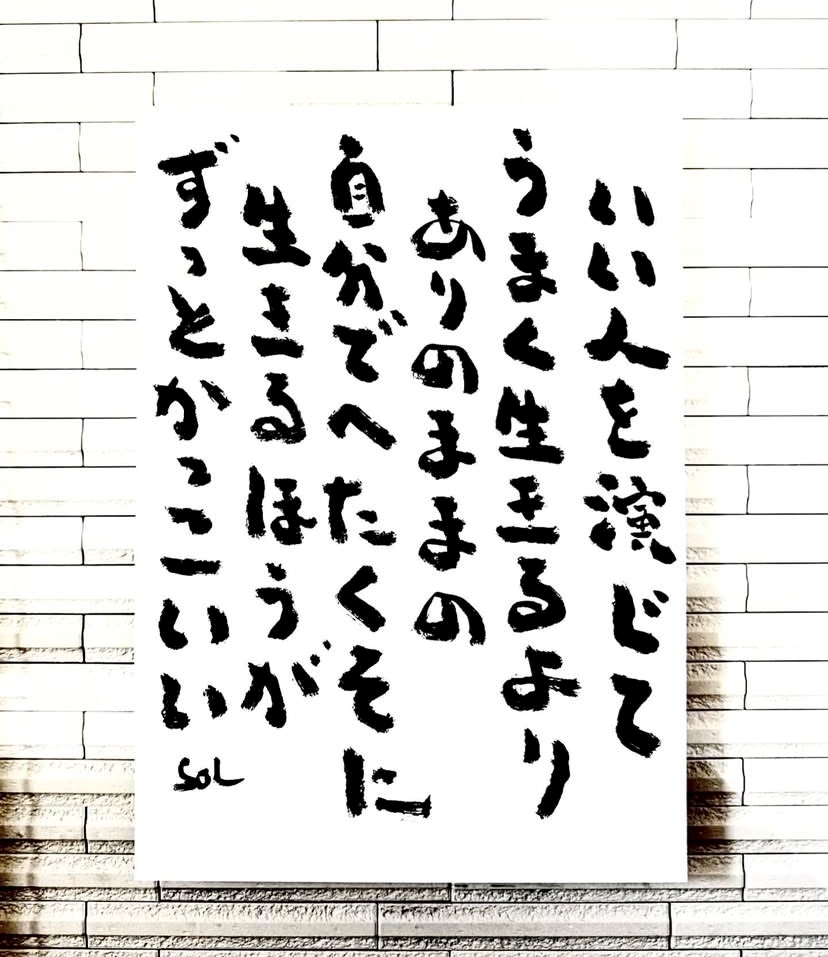 いい人を演じて
うまく生きるより
ありのままの
自分でへたくそに
生きるほうが
ずっとかっこいい
SOL